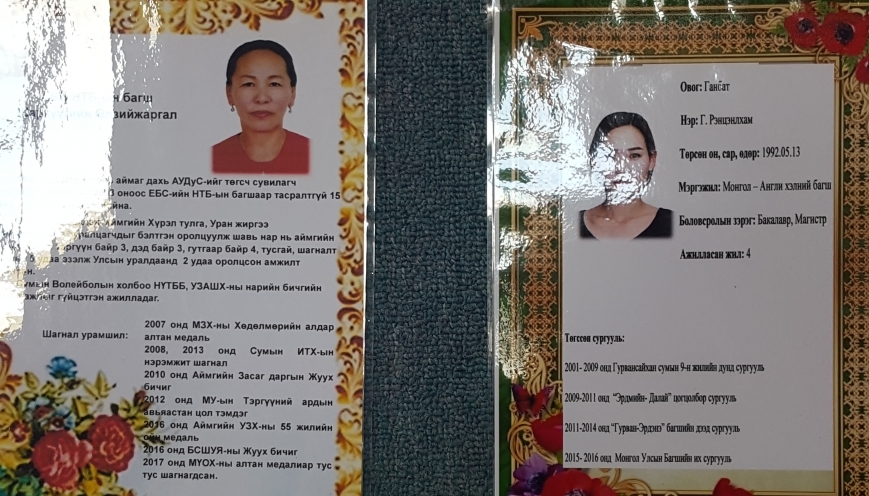 НТБ-ын багш
аймаг дахь АУДуС-ийг төгсч сувилагч
оноос ЕБС-ийн НТБ-ын багшаар тасралтгүй 15
Хүрэл тулга, Уран жиргээ
бэлтгэн оролцуулж шавь нар нь аймгийн
байр 3, дэд байр 3, гутгаар байр 4, тусгай, шагналт
5 удаа эзэлж Улсын уралдаанд 2 удаа оролцсон амжилт
Волейболын холбоо НҮТББ, УЗАШХ-ны нарийн бичгийн
гүйцэтгэн ажилладаг.
Шагнал урамшил:
2007 онд МЗХ-ны Хөдөлмөрийн алдар
алтан медаль
2008, 2013 онд Сумын ИТХ-ын
нэрэмжит шагнал
2010 онд Аймгийн Засаг даргын Жуух
бичиг
2012 онд МУ-ын Тэргүүний ардын
авьяастан цол тэмдэг
2016 онд Аймгийн УЗХ-ны 55 жилийн
ойн медаль
2016 онд БСШУЯ-ны Жуух бичиг
2017 онд МҮОХ-ны алтан медалиар тус
тус шагнагдсан.
Овог: Гансат
Нэр: Г. Рэнцэнлхам
Төрсөн он, сар, өдөр: 1992.05.13
Мэргэжил: Монгол – Англи хэлний багш
Боловсролын зэрэг: Бакалавр, Магистр
Ажилласан жил: 4
Төгссөн сургууль:
2001- 2009 онд Гурвансайхан сумын 9-н жилийн дунд сургууль
2009-2011 онд “Эрдмийн- Далай” цогцолбор сургууль
2011-2014 онд “Гурван-Эрдэнэ” багшийн дээд сургууль
2015- 2016 онд Монгол Улсын Багшийн их сургууль